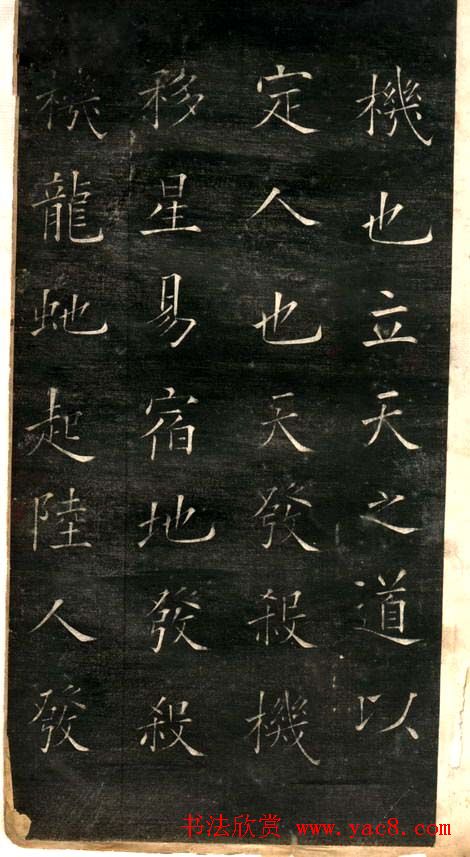 機也立天之道以
定人也天發殺機
移星易宿地發殺
機龍虵起陸人發
书法欣赏 www.yac8.com